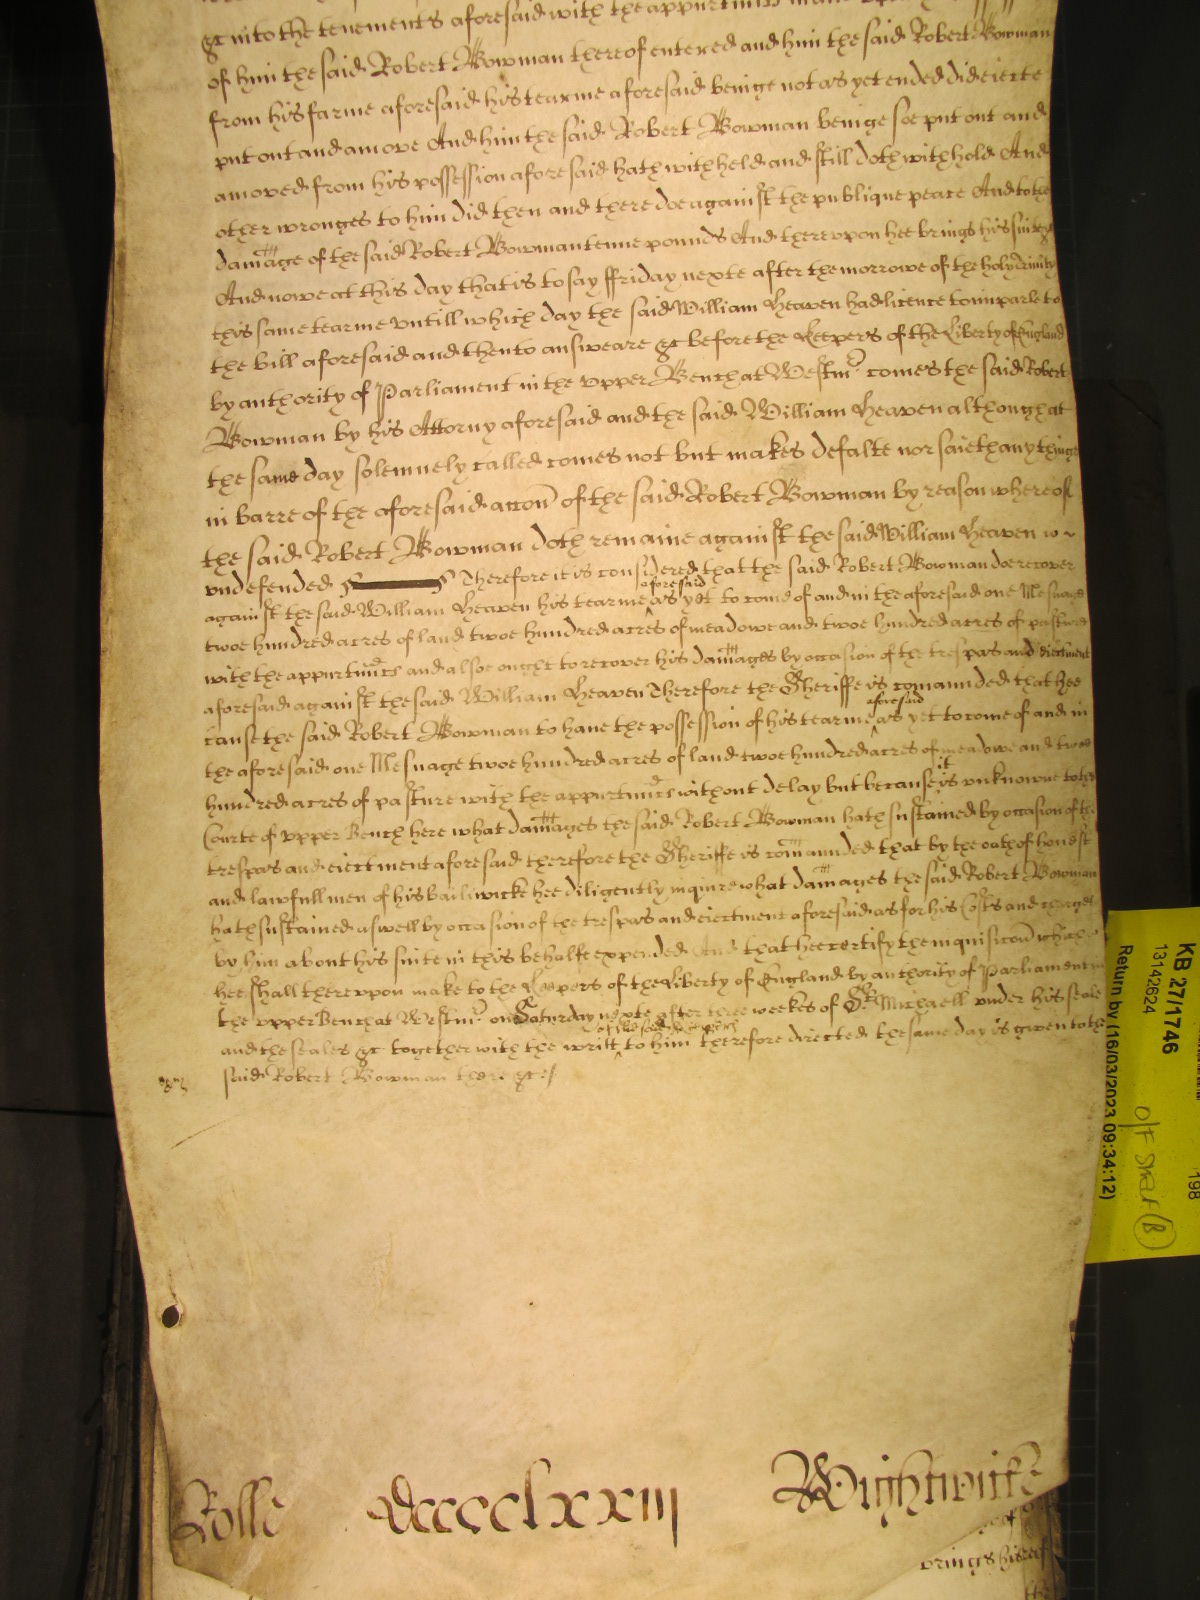 &c into the tenements aforesaid with the appurtnncs
of him the said Robert Bowman thereof entered and him the said Robert Bowman
from his farme aforesaid his tearme aforesaid beinge not as yet ended did eiecte
put out and amove And him the said Robert Bowman beinge soe put out and
amoved from his possession aforesaid hath withheld and still doth withhold And
other wronges to him did then and there doe against the publique peace And to the
damage of the said Robert Bowman tenne pounds And therevpon hee brings his suite &c
And nowe at this day that is to say ffriday nexte after the morrowe of the holy Trinity
this same tearme vntill which day the said William Heaven had licence to imparle to
the bill aforesaid and then to answeare &c before the Keepers of the Liberty of England
by authority of Parliament in the vpper Bench at Westmr comes the said Robert
Bowman by his Attorny aforesaid and the said William Heaven although at
the same day solemnely called comes not but makes defalte nor saieth any thinge
in barre of the aforesaid accon of the said Robert Bowman by reason whereof
the said Robert Bowman doth remaine against the said William Heaven
vndefended Therefore it is considered that the said Robert Bowman doe recover
against the said William Heaven his tearme aforesaid as yet to come of and in the aforesaid one Mesuage
twoe hundred acres of land twoe hundred acres of meadowe and twoe hundred acres of pasture
with the appurtnncs and alsoe ought to recover his damages by occasion of the trespas and eiectment
aforesaid against the said William Heaven Therefore the Sheriffe is comaunded that hee
cause the said Robert Bowman to have the possession of his tearme aforesaid as yet to come of and in
the aforesaid one Mesuage twoe hundred acres of land twoe hundred acres of meadowe and twoe
hundred acres of pasture with the appurtnncs without delay but because it is unknowne to the
Courte of vpper Bench here what damages the said Robert Bowman hath sustained by occasion of the
trespas and eiectment aforesaid therefore the Sheriffe is comaunded that by the oath of honest
and lawfull men of his bailiwicke hee diligently inquire what damages the said Robert Bowman
hath sustained aswell by occasion of the trespas and eiectment aforesaid as for his Costs and charges
by him about his suite in this behalfe expended And that hee certify the inquisicon which
hee shall therevpon make to the Keepers of the Liberty of England by authority of Parliament in
the vpper Bench at Westmr on Saturday nexte after three weekes of St Michaell vnder his seale
and the seales &c together with the writt to him therefore directed the same day is given to the
said Robert Bowman there &c
Rolle Dccccclxxiii Wightwicke
brings hereof
KB 27/1746
13142624
Return by (16/03/2023 09:34:12)
198
O/F Shelf (B)